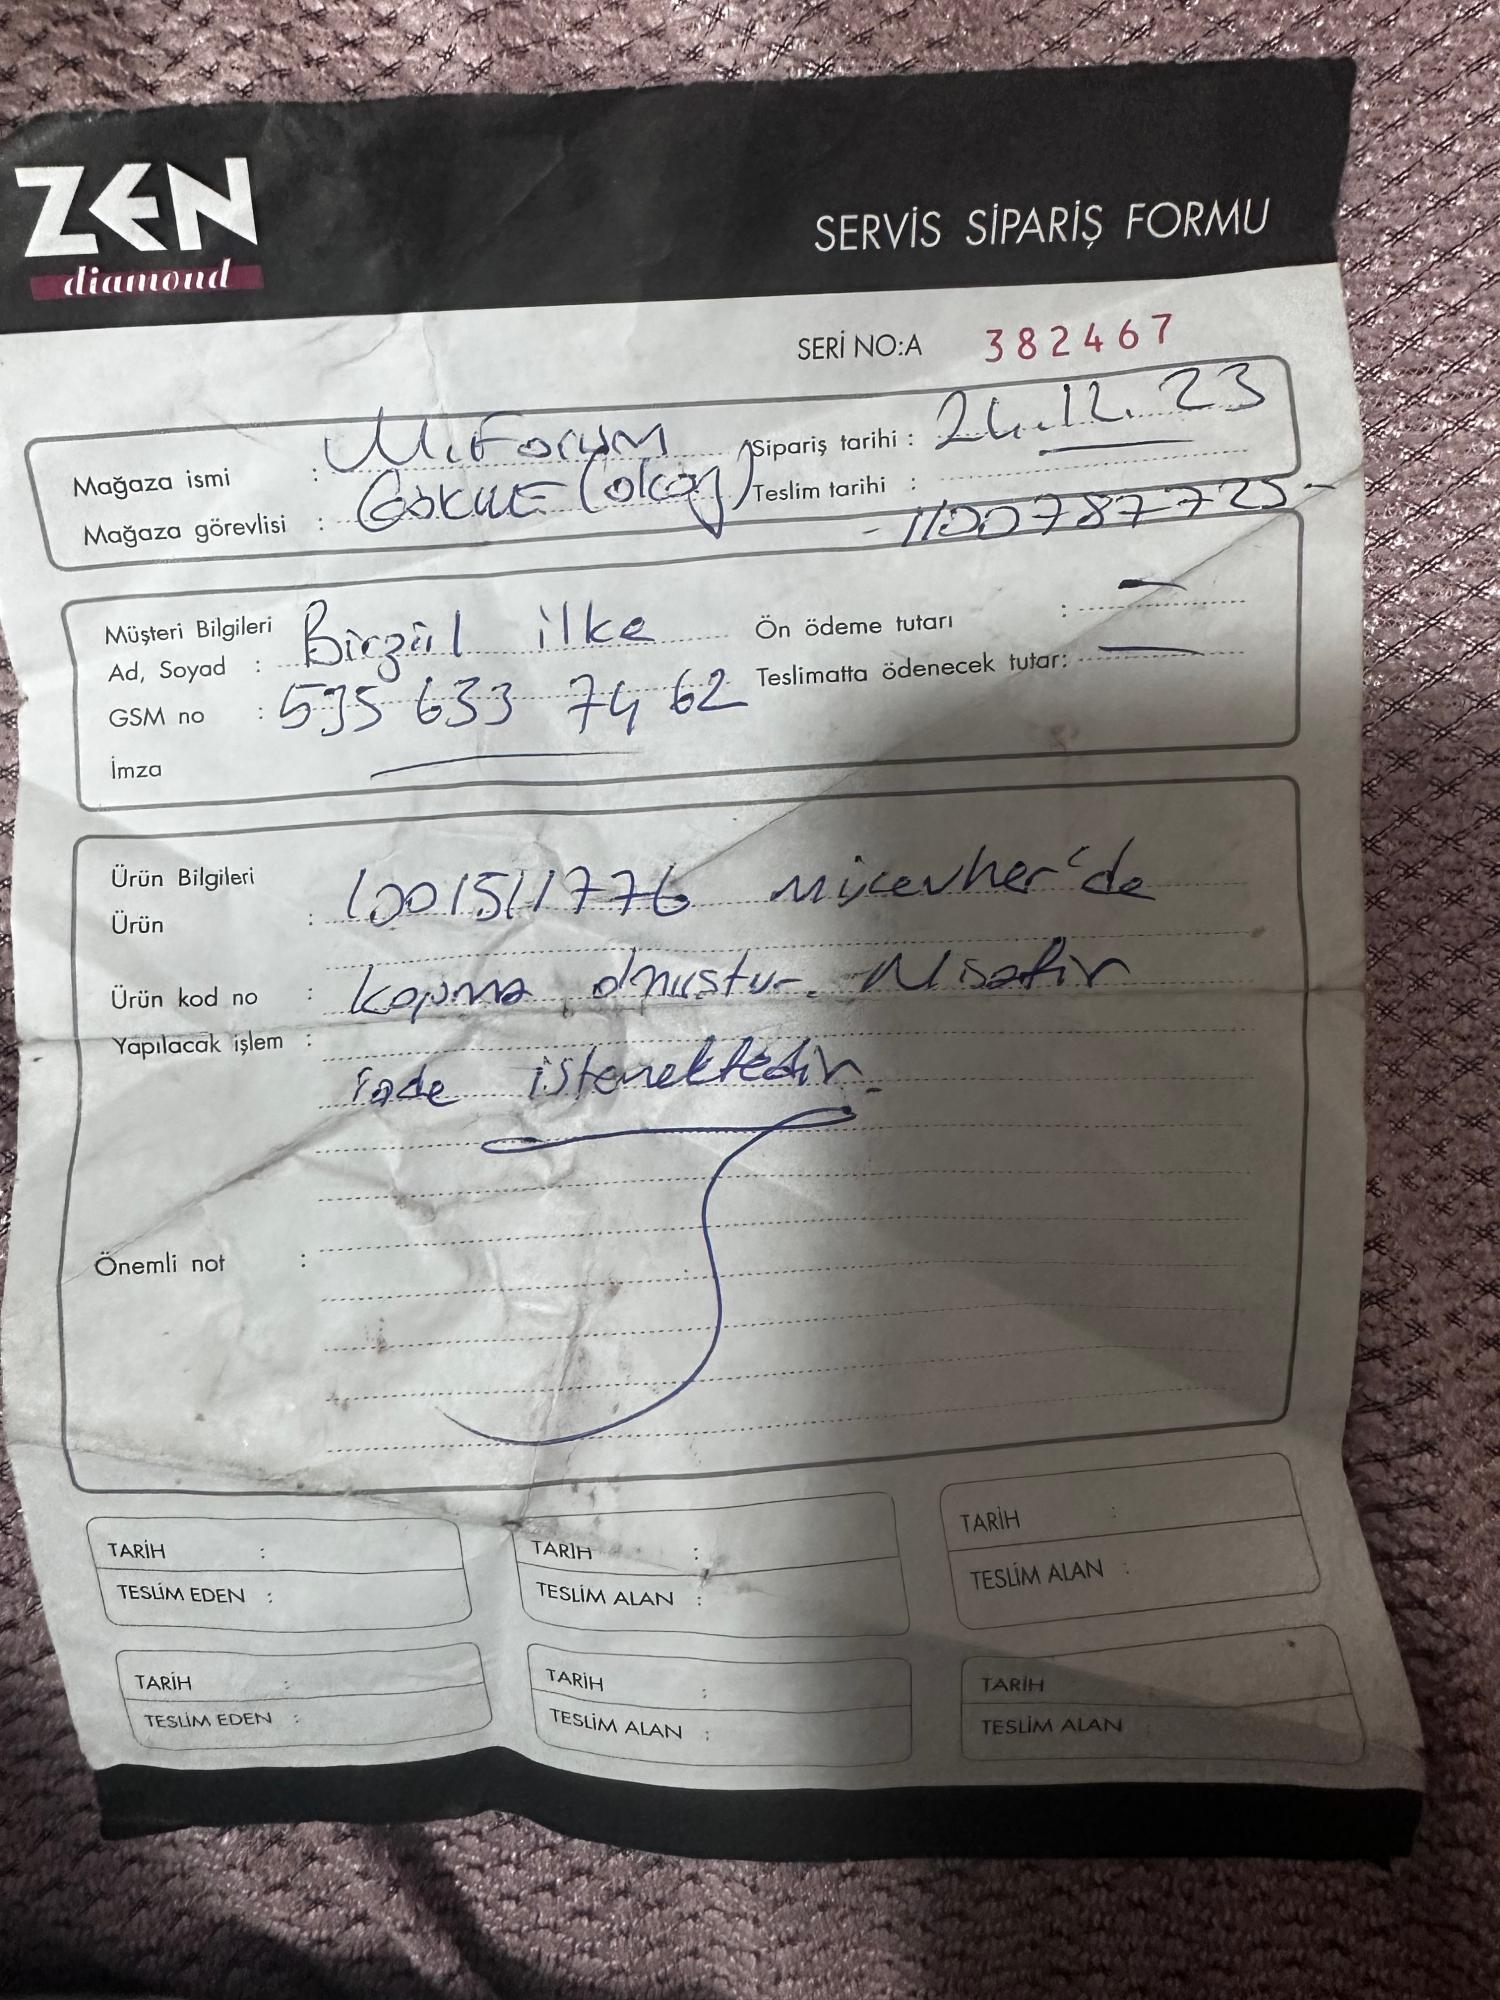 ZEN
diamond
SERVİS SİPARİŞ FORMU
SERİ NO:A 382467
Mağaza ismi : M.Forum
Sipariş tarihi : 24.12.23
Mağaza görevlisi : GÖKÇE (okay)
Teslim tarihi :
- 1100787725-
Müşteri Bilgileri
Ad, Soyad : Birgül ilke
Ön ödeme tutarı : -
GSM no : 535 633 74 62
Teslimatta ödenecek tutar: -
İmza
Ürün Bilgileri
Ürün : 1001511776 Mücevher'de
Ürün kod no : kopma olmuştur. Misafir
Yapılacak işlem :
iade istemektedir.
Önemli not :
TARİH :
TESLİM EDEN :
TARİH :
TESLİM ALAN :
TARİH :
TESLİM ALAN :
TARİH :
TESLİM EDEN :
TARİH :
TESLİM ALAN :
TARİH
TESLİM ALAN :